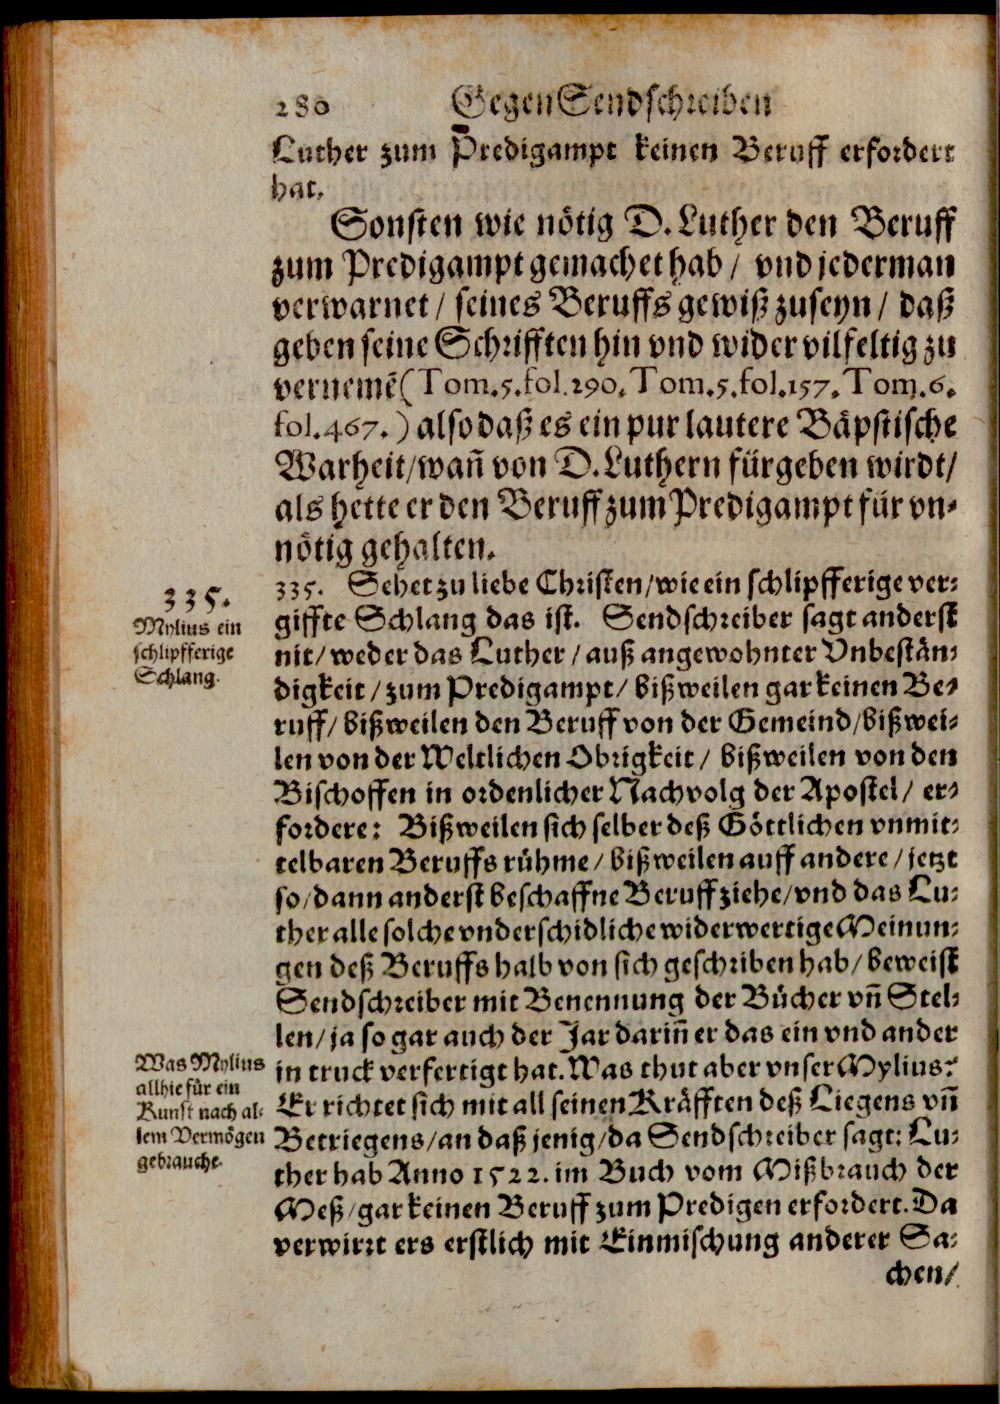 280 Gegen Sendschreiben
Luther zum Predigampt keinen Beruff erfordert
hat.
Sonsten wie nötig D. Luther den Beruff
zum Predigampt gemachet hab / vnd jederman
verwarnet / seines Beruffs gewiß zuseyn / daß
geben seine Schrifften hin vnd wider vilfeltig zu
vernemẽ (Tom.5.fol.290. Tom.5.fol.157. Tom.6.
fol.467.) also daß es ein pur lautere Bäpstische
Warheit/wañ von D. Luthern fürgeben wirdt/
als hette er den Beruff zum Predigampt für vn-
nötig gehalten.
335.
Mylius ein
schlipfferige
Schlang.
335. Sehet zu liebe Christen/wie ein schlipfferige ver-
giffte Schlang das ist. Sendschreiber sagt anderst
nit/weder das Luther / auß angewohnter Vnbestän-
digkeit / zum Predigampt / bißweilen gar keinen Be-
ruff / bißweilen den Beruff von der Gemeind/bißwei-
len von der Weltlichen Obrigkeit / bißweilen von den
Bischoffen in ordenlicher Nachvolg der Apostel / er-
fordere: Bißweilen sich selber deß Göttlichen vnmit-
telbaren Beruffs rühme / bißweilen auff andere / jetzt
so/dann anderst beschaffne Beruff ziehe/vnd das Lu-
ther alle solche vnderschidliche widerwertige Meinun-
gen deß Beruffs halb von sich geschriben hab / beweist
Sendschreiber mit Benennung der Bücher vñ Stel-
len / ja so gar auch der Jar dariñ er das ein vnd ander
in truck verfertigt hat. Was thut aber vnser Mylius?
Was Mylius
allhie für ein
Kunst nach al-
lem Vermögen
gebrauche.
Er richtet sich mit all seinen Kräfften deß Liegens vñ
Betriegens/an daß jenig/da Sendschreiber sagt: Lu-
ther hab Anno 1522. im Buch vom Mißbrauch der
Meß/gar keinen Beruff zum Predigen erfordert. Da
verwirrt ers erstlich mit Einmischung anderer Sa-
chen/